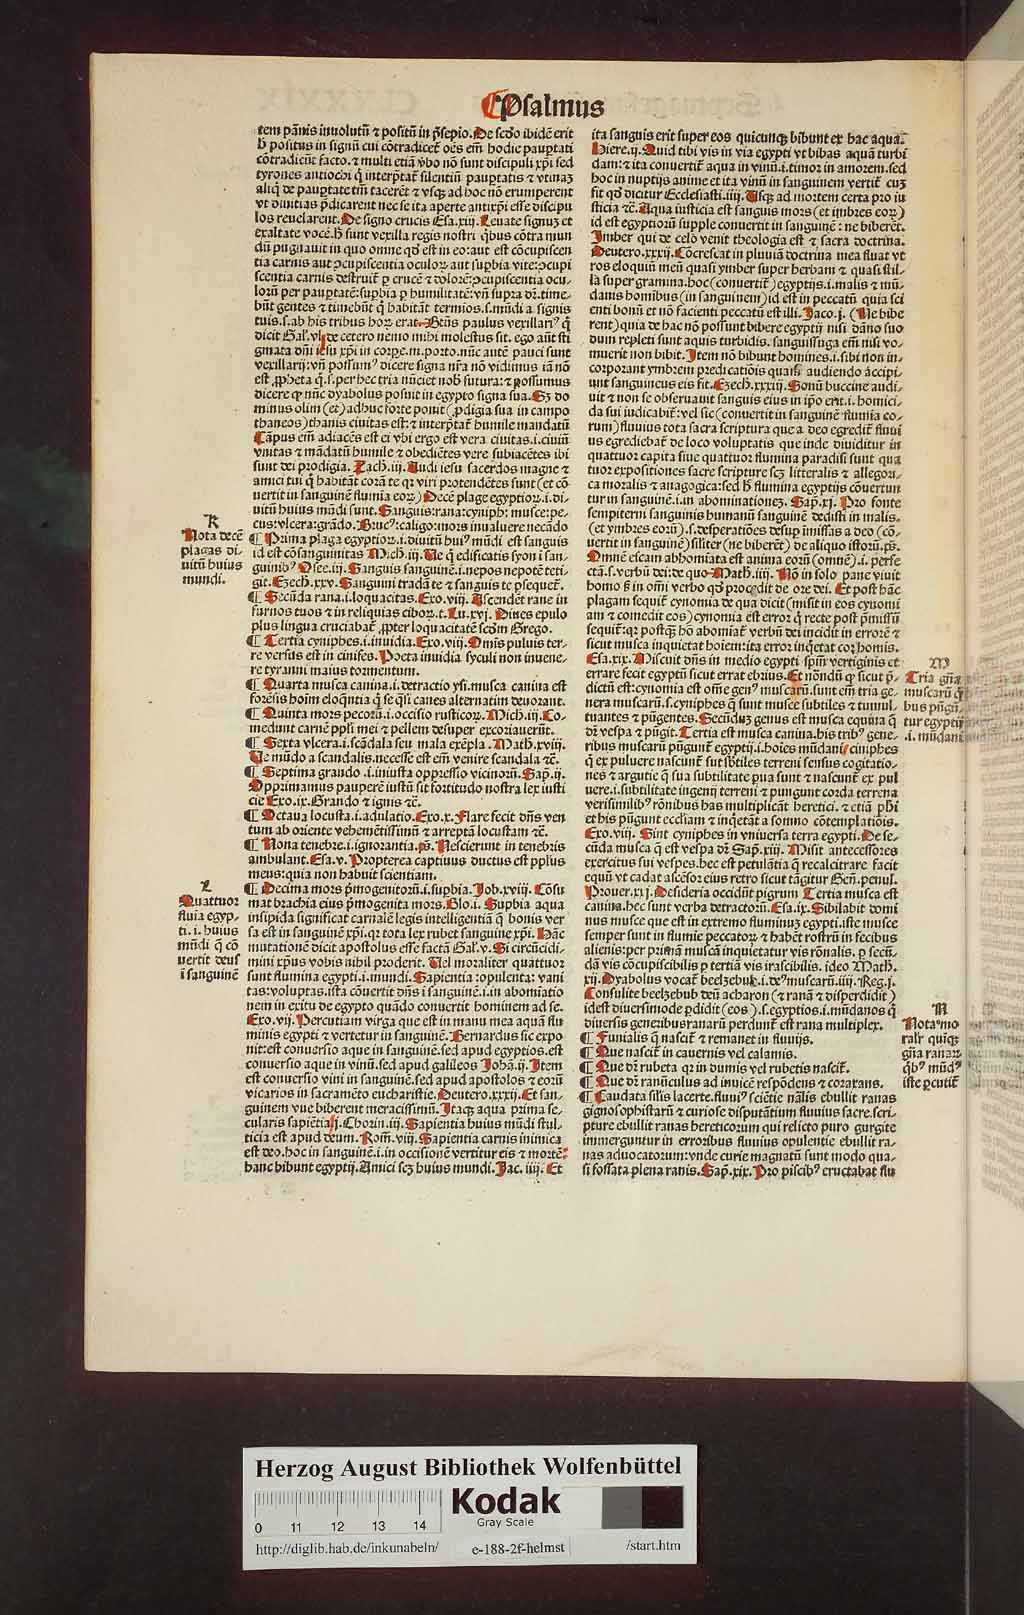 Psalmus
tem pãnis inuolutũ ⁊ positũ in p̃sepio. De scďo ibidẽ erit
positus in signũ cui cõtradicet̃ oẽs em̃ hodie pauptati
cõtradicũt facto. ⁊ multi etiã v̓bo nõ sunt discipuli xp̃i sed
tyrones antiochi q̃ interp̃tat̃ silentiũ pauptatis ⁊ vtinaʒ
aliq̃ de pauptate tm̃ tacerẽt ⁊ vsqʒ ad hoc nõ erumperent
vt diuitias p̃dicarent nec se ita aperte antixp̃i esse discipu
los reuelarent. De signo crucis Esa.xiij. Leuate signuʒ et
exaltate vocẽ. sunt vexilla regis nostri q̃bus cõtra mun
dũ pugnauit in quo omne qď est in eo: aut est cõcupiscen
tia carnis aut ɔcupiscentia oculoꝝ aut supbia vite: ɔcupi
scentia carnis destruit̃ ꝑ crucẽ ⁊ dolorẽ: ɔcupiscentia ocu-
lorũ per pauptatẽ: supbia ꝑ humilitatẽ: vñ supra dr̃. time-
bũt gentes ⁊ timebũt q̃ habitãt termios. s. mũdi a signis
tuis. s. ab his tribus hoꝝ erat. Btũs paulus vexillari⁹ q̃
dicit Gal̃.vj. de cetero nemo mihi molestus sit. ego aũt sti
gmata dñi iesu xp̃i in corpe. m. porto. nũc autẽ pauci sunt
vexillarij: vñ possum⁹ dicere signa nr̃a nõ vidimus iã nõ
est ꝓpheta q̃. s. per hec tria nũciet nob̃ futura: ⁊ possumus
dicere ꝙ nũc dyabolus posuit in egypto signa sua. Sʒ do
minus olim (et) adhuc forte ponit (ꝓdigia sua in campo
thaneos) thanis ciuitas est: ⁊ interp̃tat̃ humile mandatũ
Cãpus em̃ adiacẽs est ei vbi ergo est vera ciuitas. i. ciuiũ
vnitas ⁊ mãdatũ humile ⁊ obediẽtes vere subiacẽtes ibi
sunt dei prodigia. Zach̃.iij. Audi iesu sacerdos magne ⁊
amici tui q̃ habitãt corã te qꝛ viri protendẽtes sunt (et cõ
uertit in sanguinẽ flumia eoꝝ) Decẽ plage egyptioꝝ. i. di-
uitũ huius mũdi sunt. Sanguis: rana: cyniph̃: musce: pe-
cus: vlcera: grãdo. Bruc⁹: caligo: mors inualuere necãdo
¶ Prima plaga egyptioꝝ. i. diuitũ hui⁹ mũdi est sanguis
id est cõsanguinitas Mich̃.iij. Ve q̃ edificatis syon ĩ san-
guinib⁹ Osee.iiij. Sanguis sanguinẽ. i. nepos nepotẽ teti-
git. Ezech̃.xxv. Sanguini tradã te ⁊ sanguis te ꝑsequet̃.
¶ Secũda rana. i. loquacitas. Exo.viij. Ascendẽt rane in
furnos tuos ⁊ in reliquias ciboꝝ. t. Lu.xvj. Diues epulo
plus lingua cruciabat̃ ꝓpter loquacitatẽ scďm Grego.
¶ Tertia cyniphes. i. inuidia. Exo.viij. Omis puluis ter-
re versus est in cinifes. Poeta inuidia syculi non inuene-
re tyranni maius tormentum.
¶ Quarta musca canina. i. detractio ysi. musca canina est
forẽsis hoĩm eloq̃ntia q̃ se q̃si canes alternatim deuorant.
¶ Quinta mors pecorũ. i. occisio rusticoꝝ. Mich̃.iij. Co-
medunt carnẽ ppl̃i mei ⁊ pellem desuper excoriauerũt.
¶ Sexta vlcera. i. scãdala seu mala exẽpla. Math̃.xviij.
Ve mũdo a scandalis. necesse est em̃ venire scandala ⁊c̃.
¶ Septima grando. i. iniusta oppressio vicinorũ. Sap̃.ij.
Opprimamus pauperẽ iustũ sit fortitudo nostra lex iusti
cie Exo.ix. Grando ⁊ ignis ⁊c̃.
¶ Octaua locusta. i. adulatio. Exo.x. Flare fecit dñs ven
tum ab oriente vehemẽtissimũ ⁊ arreptã locustam ⁊c̃.
¶ Nona tenebre. i. ignorantia. ps̃. Nescierunt in tenebris
ambulant. Esa.v. Propterea captiuus ductus est pplũs
meus: quia non habuit scientiam.
¶ Decima mors p̃mogenitorũ. i. supbia. Job.xviij. Cõsu
mat brachia eius p̃mogenita mors. Glo.i. Supbia aqua
insipida significat carnalẽ legis intelligentiã q̃ bonis ver
sa est in sanguinẽ xp̃i. qꝛ tota lex rubet sanguine xp̃i. Hãc
mutationẽ dicit apostolus esse factã Gal̃.v. Si circũcidi-
mini xp̃us vobis nihil proderit. Uel moraliter quattuor
sunt flumina egypti. i. mundi. Sapientia: opulenta: vani
tas: voluptas. ista cõuertit dñs ĩ sanguinẽ. i. in abomiatio
nem in exitu de egypto quãdo conuertit hominem ad se.
Exo.vij. Percutiam virga que est in manu mea aquã flu
minis egypti ⁊ vertetur in sanguinẽ. Bernardus sic expo
nit: est conuersio aque in sanguinẽ. sed apud egyptios. est
conuersio aque in vinũ. sed apud galileos Johã.ij. Item
est conuersio vini in sanguinẽ. sed apud apostolos ⁊ eorũ
vicarios in sacramẽto eucharistie. Deutero.xxxij. Et san-
guinem vue biberent meracissimũ. Itaqʒ aqua prima se-
cularis sapiẽtia j. Chorin.iij. Sapientia huius mũdi stul-
ticia est apud deum. Rom̃.viij. Sapientia carnis inimica
est deo. hoc in sanguinẽ. i. in occisionẽ vertitur eis ⁊ mortẽ:
hanc bibunt egyptij. Amici scʒ huius mundi. Jac.iiij. Et
K
Nota decẽ
plagas di-
uitũ huius
mundi.
L
Quattuor
fluia egyp-
ti. i. huius
mũdi q̃ cõ
uertit deus
ĩ sanguinẽ
ita sanguis erit super eos quicunqʒ bibunt ex hac aqua.
Hiere.ij. Quid tibi vis in via egypti vt bibas aquã turbi
dam: ⁊ ita conuertit̃ aqua in vinũ. i. timor in amorem. sed
hoc in nuptijs anime et ita vinũ in sanguinem vertit̃ cuʒ
fit qď dicitur Ecclesiasti.iiij. Usqʒ ad mortem certa pro iu
sticia ⁊c̃. Aqua iusticia est sanguis mors (et ijmbres eoꝝ)
id est egyptiorũ supple conuertit in sanguinẽ: ne biberẽt.
Imber qui de celo venit theologia est ⁊ sacra doctrina.
Deutero.xxxij. Cõcrescat in pluuiã doctrina mea fluat vt
ros eloquiũ meũ quasi ymber super herbam ⁊ quasi stil-
la super gramina. hoc (conuertit̃) egyptijs. i. malis ⁊ mũ-
danis homibus (in sanguinem) id est in peccatũ quia sci
enti bonũ et nõ facienti peccatũ est illi. Jaco.j. (Ne bibe
rent) quia de hac nõ possunt bibere egyptij nisi dãno suo
dum repleti sunt aquis turbidis. sanguissuga em̃ nisi vo-
muerit non bibit. Item nõ bibunt homines. i. sibi non in-
corporant ymbrem predicatiõis quasi audiendo accipi-
unt sanguineus eis fit. Ezech̃.xxxiij. Sonũ buccine audi-
uit ⁊ non se obseruauit sanguis eius in ip̃o erit. i. homici-
da sui iudicabit̃: vel sic (conuertit in sanguinẽ flumia eo-
rum) fluuius tota sacra scriptura que a deo egredit̃ fluui
us egrediebat̃ de loco voluptatis que inde diuiditur in
quattuor capita siue quattuor flumina paradisi sunt qua
tuor expositiones sacre scripture scʒ litteralis ⁊ allegori-
ca moralis ⁊ anagogica: sed flumina egyptijs cõuertun
tur in sanguinẽ. i. in abominationeʒ. Sap̃.xj. Pro fonte
sempiterni sanguinis humanũ sanguinẽ dedisti in malis.
(et ymbres eorũ). s. desperatiões desup immissas a deo (cõ-
uertit in sanguinẽ) sil̃iter (ne biberẽt) de aliquo istorũ. ps̃.
Omnẽ escam abhomiata est anima eorũ (omnẽ). i. perfe
ctã. s. verbũ dei: de quo Math̃.iiij. Nõ in solo pane viuit
homo in om̃i verbo qď procedit de ore dei. Et post hãc
plagam sequit̃ cynomia de qua dicit (misit in eos cynomi
am ⁊ comedit eos) cynomia est error q̃ recte post p̃missũ
sequit̃: qꝛ postqʒ hõ abomiat̃ verbũ dei incidit in errorẽ ⁊
sicut musca inquietat hoiem: ita error inq̃etat coꝝ homis.
Esa.xix. Miscuit dñs in medio egypti spm̃ vertiginis et
errare fecit egyptũ sicut errat ebrius. Et nõndũ ꝙ sicut p̃-
dictũ est: cynomia est om̃e gen⁹ muscarũ. sunt em̃ tria ge-
nera muscarũ. s. cyniphes q̃ sunt musce subtiles ⁊ tumul-
tuantes ⁊ pũgentes. Secũduʒ genus est musca equina q̃
dr̃ vespa ⁊ pũgit. Tertia est musca canina. his trib⁹ gene-
ribus muscarũ pũgunt̃ egyptij. i. hoĩes mũdani ciniphes
q̃ ex puluere nascunt̃ sut sbtiles terreni sensus cogitatio-
nes ⁊ argutie q̃ sua subtilitate ꝑua sunt ⁊ nascunt̃ ex pul
uere. i. subtilitate ingenij terreni ⁊ pungunt corda terrena
verisimilib⁹ rõnibus has multiplicãt heretici. ⁊ etiã phĩ
et his pũgunt eccl̃iam ⁊ inq̃etãt a somno cõtemplatiõis.
Exo.viij. Sint cyniphes in vniuersa terra egypti. De se-
cũda musca q̃ est vespa dr̃ Sap̃.xiij. Misit antecessores
exercitus sui vespes. hec est petulãtia q̃ recalcitrare facit
equũ vt cadat ascẽsor eius retro sicut tãgitur Geñ. penul̃.
Prouer.xij. Desideria occidũt pigrum Tertia musca est
canina. hec sunt verba detractorũ. Esa.ix. Sibilabit domi
nus musce que est in extremo fluminuʒ egypti. iste musce
semper sunt in flumie peccatoꝝ ⁊ habẽt rostrũ in fecibus
alienis: per primã muscã inquietatur vis rõnalis. ꝑ secũ-
dã vis cõcupiscibilis ꝑ tertiã vis irascibilis. ideo Math̃.
xij. Dyabolus vocat̃ beelzebub. i. de⁹ muscarũ. iiij. Reg.j.
Consulite beelzebub deũ acharon (⁊ ranã ⁊ disperdidit)
idest diuersimode ꝑdidit (eos). s. egyptios. i. mũdanos q̃
diuersis generibus ranarũ perdunt̃ est rana multiplex.
¶ Funialis q̃ nascit̃ ⁊ remanet in fluuijs.
¶ Que nascit̃ in cauernis vel calamis.
¶ Que dr̃ rubeta qꝛ in dumis vel rubetis nascit̃.
¶ Que dr̃ ranũculus ad inuicẽ respõdens ⁊ coaxans.
¶ Caudata silis lacerte. fluui⁹ sciẽtie nãlis ebullit ranas
gignosophistarũ ⁊ curiose disputãtium fluuius sacre. scri-
pture ebullit ranas hereticorum qui relicto puro gurgite
immerguntur in erroribus fluuius opulentie ebullit ra-
nas aduocatorum: vnde curie magnatũ sunt modo qua-
si fossata plena ranis. Sap̃.xix. Pro piscib⁹ eructabat flu
M
Tria gña
muscarũ q̃
bus pũgũ-
tur egyptij
.i. mũdani
N
Nota mo
ral̓r quiqʒ
gña ranaꝝ
q̃b⁹ mũd⁹
iste ꝑcutit̃
Herzog August Bibliothek Wolfenbüttel
Kodak
Gray Scale
0 11 12 13 14
http://diglib.hab.de/inkunabeln/ e-188-2f-helmst /start.htm